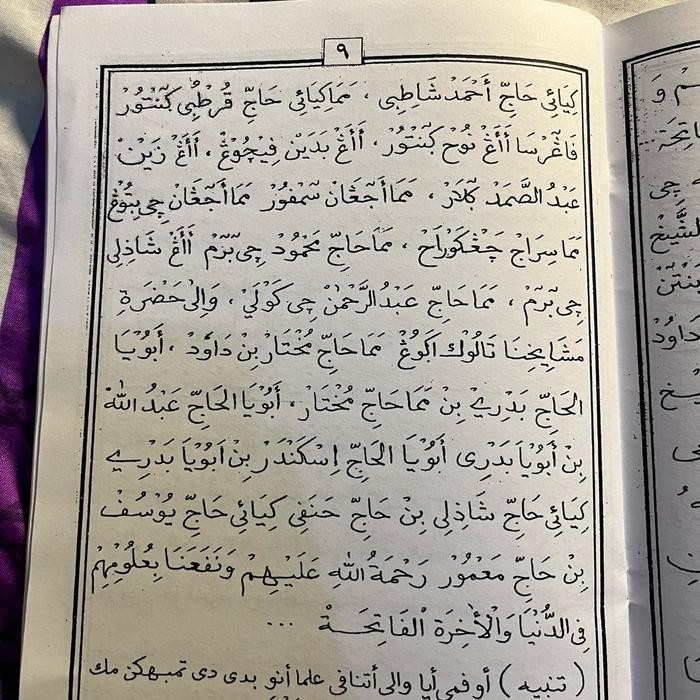 ٩
كِيَائِي حَاجّ أَحْمَدْ شَاطِبِى ، مَمَاكِيَائِي حَاجّ قُرْطُبِى كَنْتُورْ
فَاڠْرَسَا أَأَڠْ نُوْحْ كَنْتُورْ، أَأَڠْ بَدَيْن فِيچُوڠْ، أَأَڠْ زَيْنْ
عَبْدُ الصَّمَدْ ݢَلَارْ، مَمَا أَجَڠَانْ سَمْفُورْ مَمَا أَجَڠَانْ چِى بِتُوڠْ
مَمَا سِرَاجْ چَڠْكُورَاحْ ، مَمَاحَاجّ مَحْمُودْ چِى بَرَمْ أَأَڠْ شَاذِلِى
چِى بَرَمْ ، مَمَاحَاجّ عَبْدُ الرَّحْمٰنْ چِى كَوْلَيْ، وَاِلىٰ حَضْرَةِ
مَشَايِخِنَا تَالُوكْ اَݢُوڠْ مَمَاحَاجّ مُخْتَارْ بِنْ دَاوُدْ ، أَبُوْيَا
الحَاجّ بَدْرِيْ بِنْ مَمَاحَاجّ مُخْتَارْ، أَبُوْيَا الحَاجّ عَبْدُ اللّٰهْ
بِنْ أَبُوْيَا بَدْرِى أَبُوْيَا الحَاجّ إِسْكَنْدَرْ بِنْ اَبُوْيَا بَدْرِيْ
كِيَائِي حَاجّ شَاذِلِى بِنْ حَاجّ حَنَفِى كِيَائِي حَاجّ يُوْسُفْ
بِنْ حَاجّ مَعْمُورْ رَحْمَةُ اللّٰهِ عَلَيْهِمْ وَنَفَعَنَا بِعُلُومِهِمْ
فِى الدُّنْيَا وَالْأَخِرَةِ الْفَاتِحَة ...
( تنبيه ) أوفمى أيا والى أتنافى علما أنو بدى دى تمبهكن مك